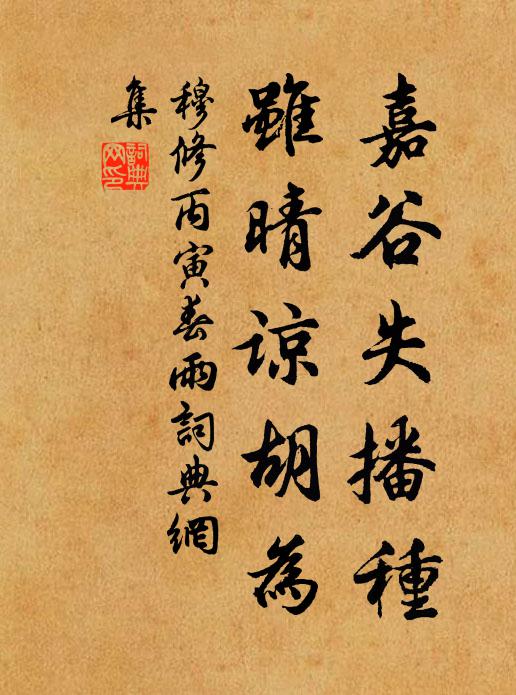 嘉谷失播種
雖晴諒胡為
穆修丙寅春雨詞典網
集
詞典網印